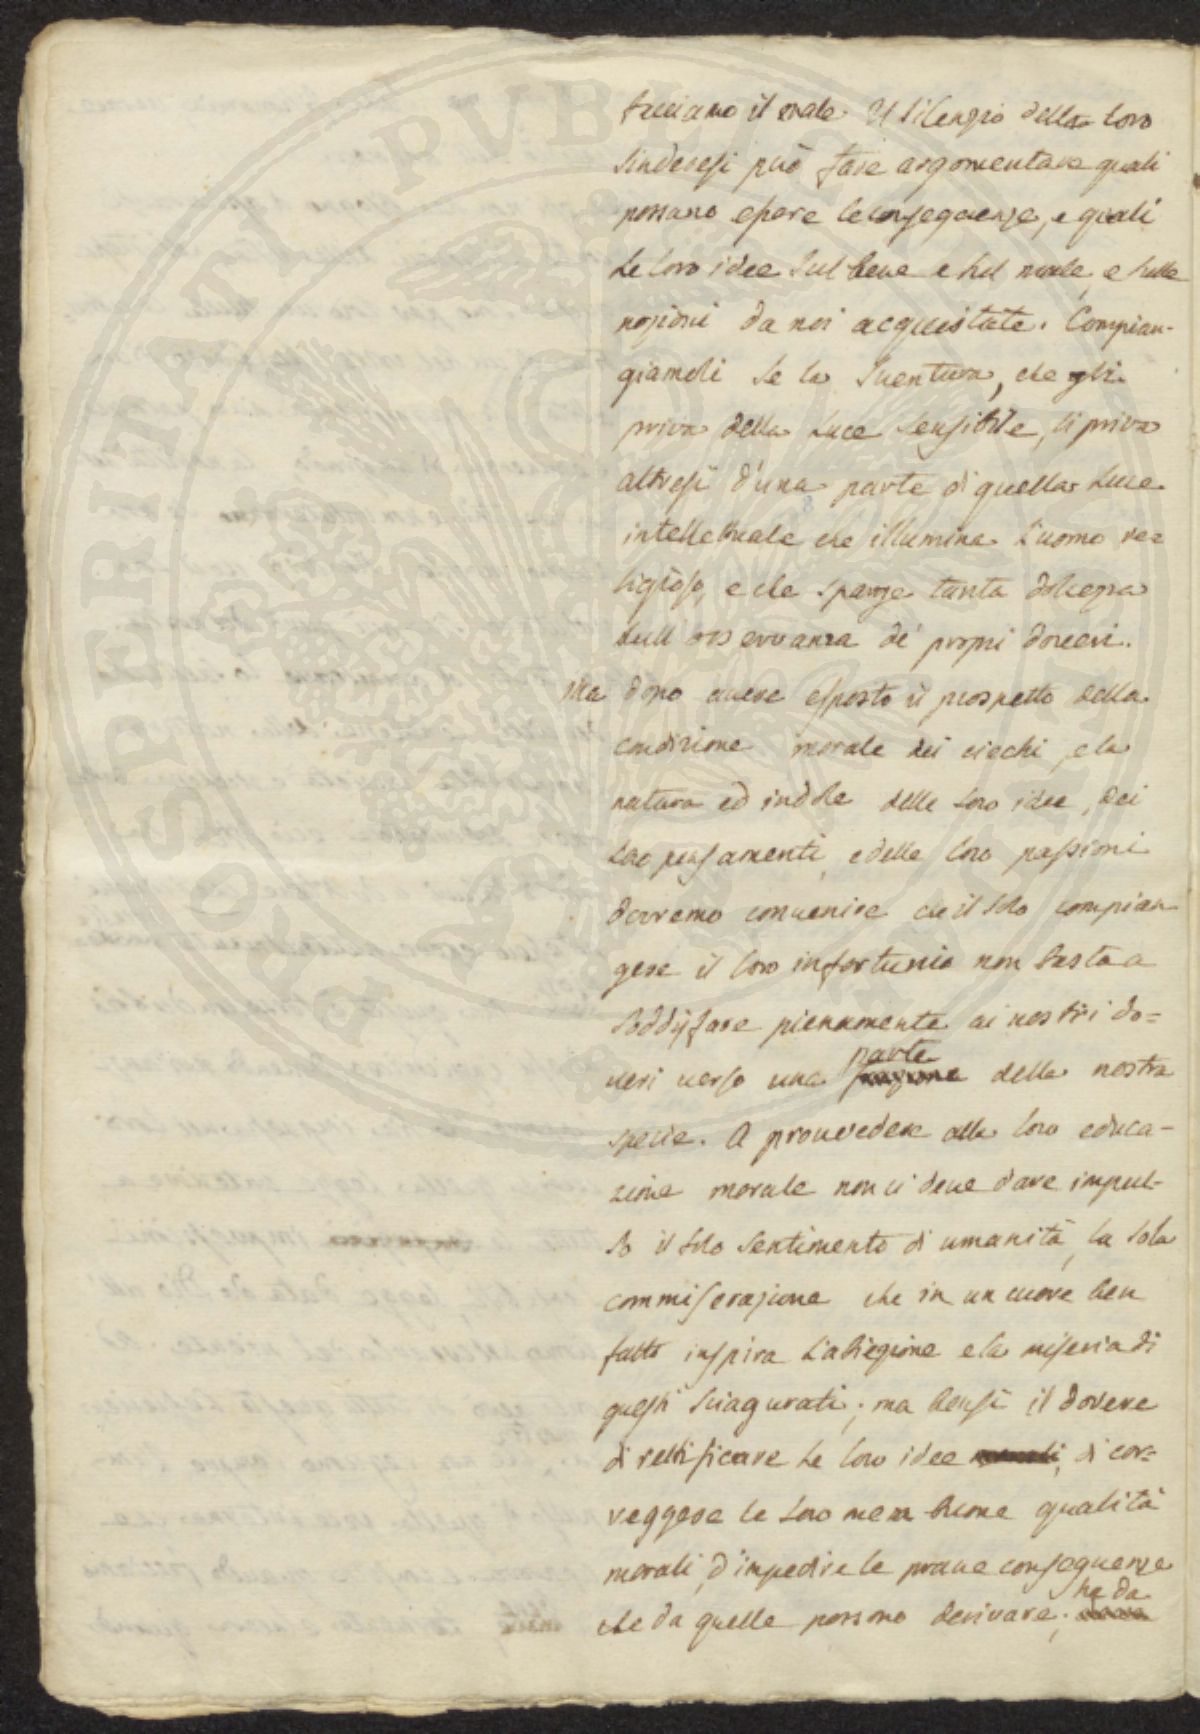 facciano il male. Il silenzio della loro
sinderesi può fare argomentare quali
possano essere le conseguenze, e quali
le loro idee sul bene e sul male, e sulle
nozioni da noi acquistate. Compian-
giamoli se la sventura, che gli
priva della luce sensibile, li priva
altresì d'una parte di quella luce
intellettuale che illumina l'uomo re=
ligioso, e che sparge tanta dolcezza
sull'osservanza de' proprj doveri.
Ma dopo avere esposto il prospetto della
condizione morale dei ciechi, e la
natura ed indole delle loro idee, dei
loro pensamenti, e delle loro passioni
dovremo convenire che il solo compian
gere il loro infortunio non basta a
soddisfare pienamente ai nostri do=
veri verso una parte della nostra
specie. A provvedere alla loro educa-
zione morale non ci deve dare impul-
so il solo sentimento di umanità, la sola
commiserazione che in un cuore ben
fatto inspira l'abiezione e la miseria di
questi sciagurati; ma bensì il dovere
di rettificare le loro idee, di cor=
reggere le loro men buone qualità
morali, d'impedire le prave conseguenze
che da quelle possono derivare; ne da
PROSPERITATI PVBLICAE